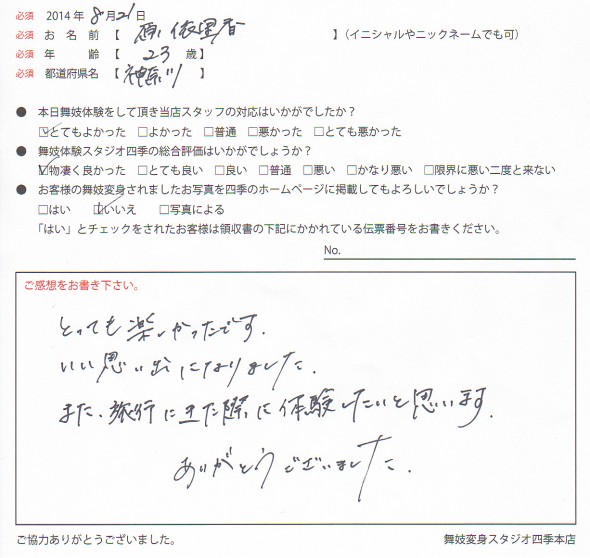 必須 2014年 8月21日
必須 お名前【 原 依里香 】(イニシャルやニックネームでも可)
必須 年齢【 23 歳】
必須 都道府県名【 神奈川 】
● 本日舞妓体験をして頂き当店スタッフの対応はいかがでしたか?
☑とてもよかった □よかった □普通 □悪かった □とても悪かった
● 舞妓体験スタジオ四季の総合評価はいかがでしょうか?
☑物凄く良かった □とても良い □良い □普通 □悪い □かなり悪い □限界に悪い二度と来ない
● お客様の舞妓変身されましたお写真を四季のホームページに掲載してもよろしいでしょうか?
□はい ☑いいえ □写真による
「はい」とチェックをされたお客様は領収書の下記にかかれている伝票番号をお書きください。
No.
ご感想をお書き下さい。
とっても楽しかったです.
いい思い出になりました.
また、旅行にきた際に体験したいと思います.
ありがとうございました.
ご協力ありがとうございました。
舞妓変身スタジオ四季本店